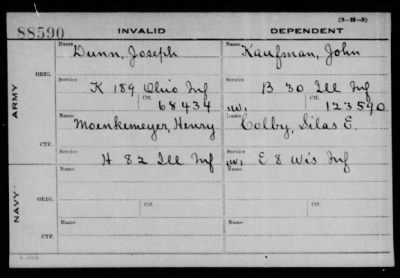 (3-H-8)
88590 INVALID DEPENDENT
Name Name
Dunn, Joseph Kaufman, John
ORIG.
Service Service
K 189 Ohio Inf B 30 Ill Inf
Ctf. Ctf.
68434 123590
ARMY
Name Name
Moenkemeyer, Henry Colby, Silas E.
CTF.
Service Service
H 82 Ill Inf E 8 Wis Inf
Ctf. Ctf.
NAVY
Name Name
ORIG.
Service Service
Ctf. Ctf.
Name Name
CTF.